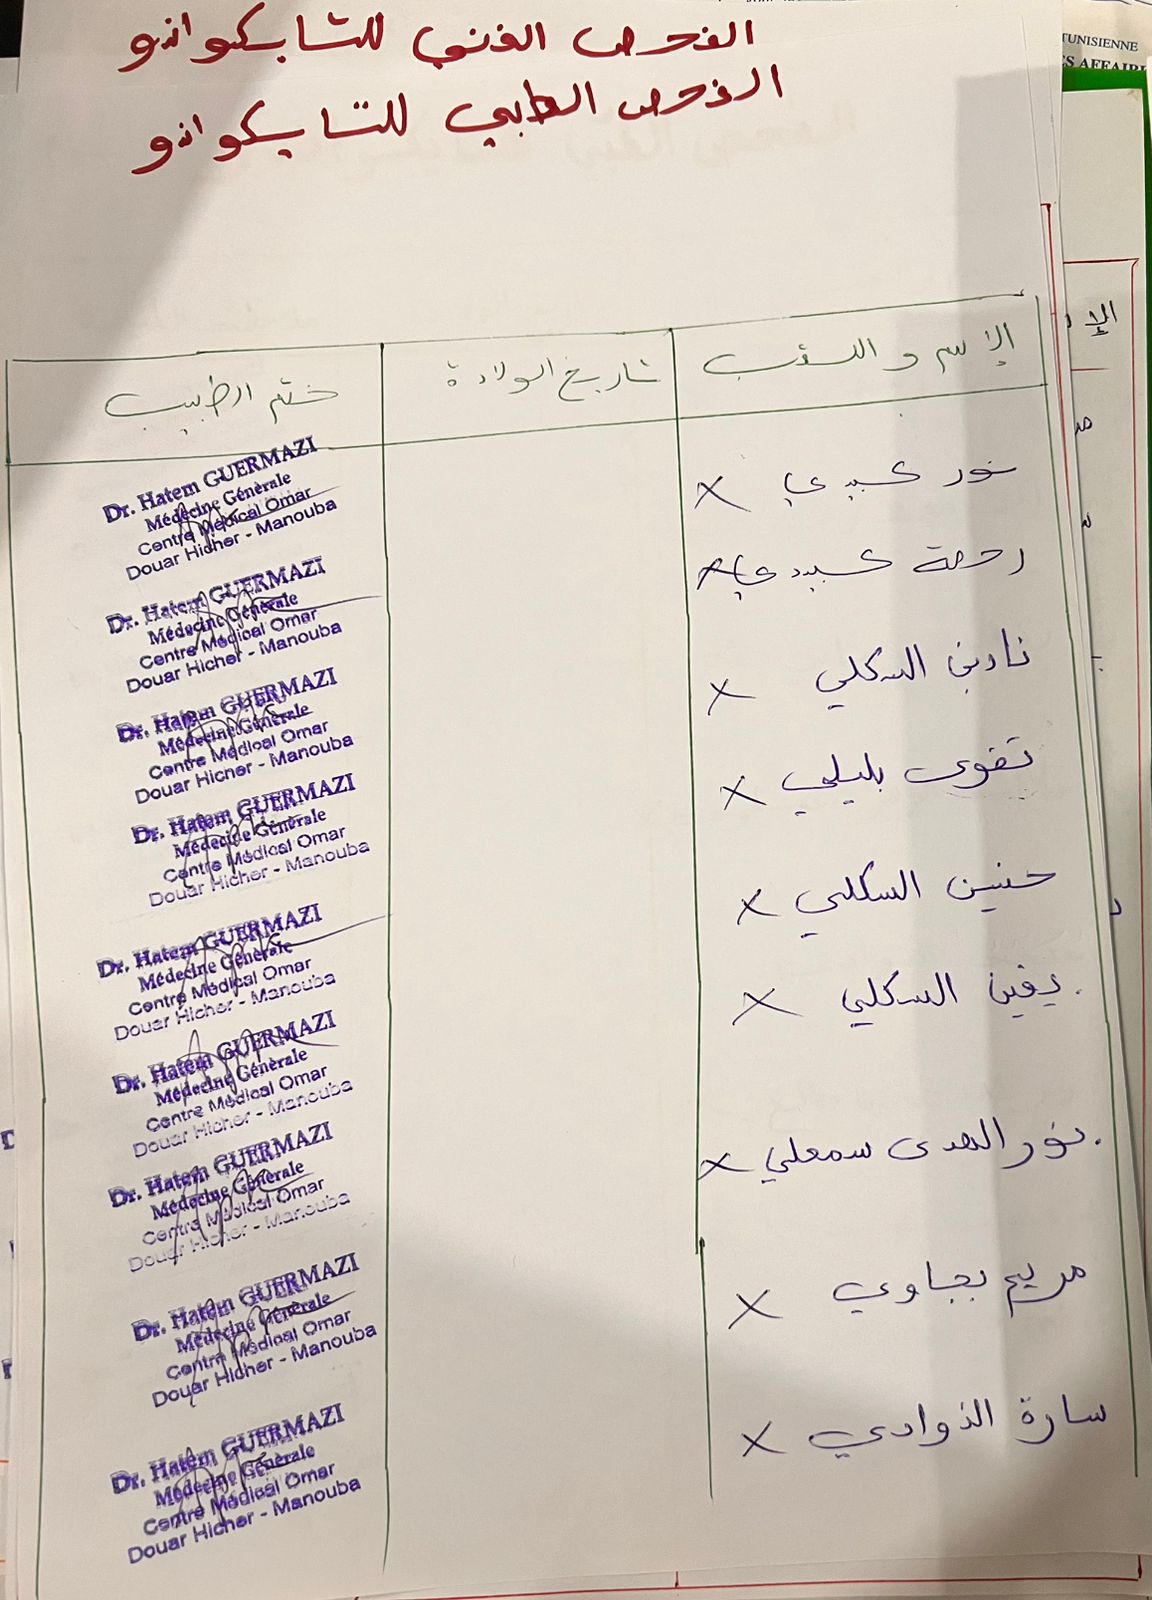 الفحص الفني للتايكواندو
الفحص الطبي للتايكواندو
TUNISIENNE
ES AFFAIRE
الإسم و اللقب
تاريخ الولادة
ختم الطبيب
نور كبيدي X
Dr. Hatem GUERMAZI
Médecine Générale
Centre Médical Omar
Douar Hicher - Manouba
رحمة كبيدي X
Dr. Hatem GUERMAZI
Médecine Générale
Centre Médical Omar
Douar Hicher - Manouba
نادين السكلي X
Dr. Hatem GUERMAZI
Médecine Générale
Centre Médical Omar
Douar Hicher - Manouba
تقوى بليلي X
Dr. Hatem GUERMAZI
Médecine Générale
Centre Médical Omar
Douar Hicher - Manouba
حنين السكلي X
Dr. Hatem GUERMAZI
Médecine Générale
Centre Médical Omar
Douar Hicher - Manouba
يقين السكلي X
Dr. Hatem GUERMAZI
Médecine Générale
Centre Médical Omar
Douar Hicher - Manouba
نور الهدى سمعلي X
Dr. Hatem GUERMAZI
Médecine Générale
Centre Médical Omar
Douar Hicher - Manouba
مريم بجاوي X
Dr. Hatem GUERMAZI
Médecine Générale
Centre Médical Omar
Douar Hicher - Manouba
سارة الذوادي X
Dr. Hatem GUERMAZI
Médecine Générale
Centre Médical Omar
Douar Hicher - Manouba